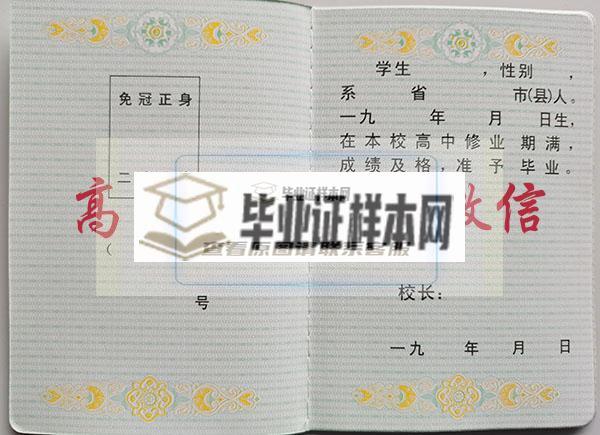 免冠正身
二
高
（
号
学生 ，性别 ，
系 省 市(县)人。
一九 年 月 日生，
在本校高中修业期满，
成绩及格，准予毕业。
信
毕业证样本网
毕业证样本网
查看原图请联系客服
校长：
一九 年 月 日